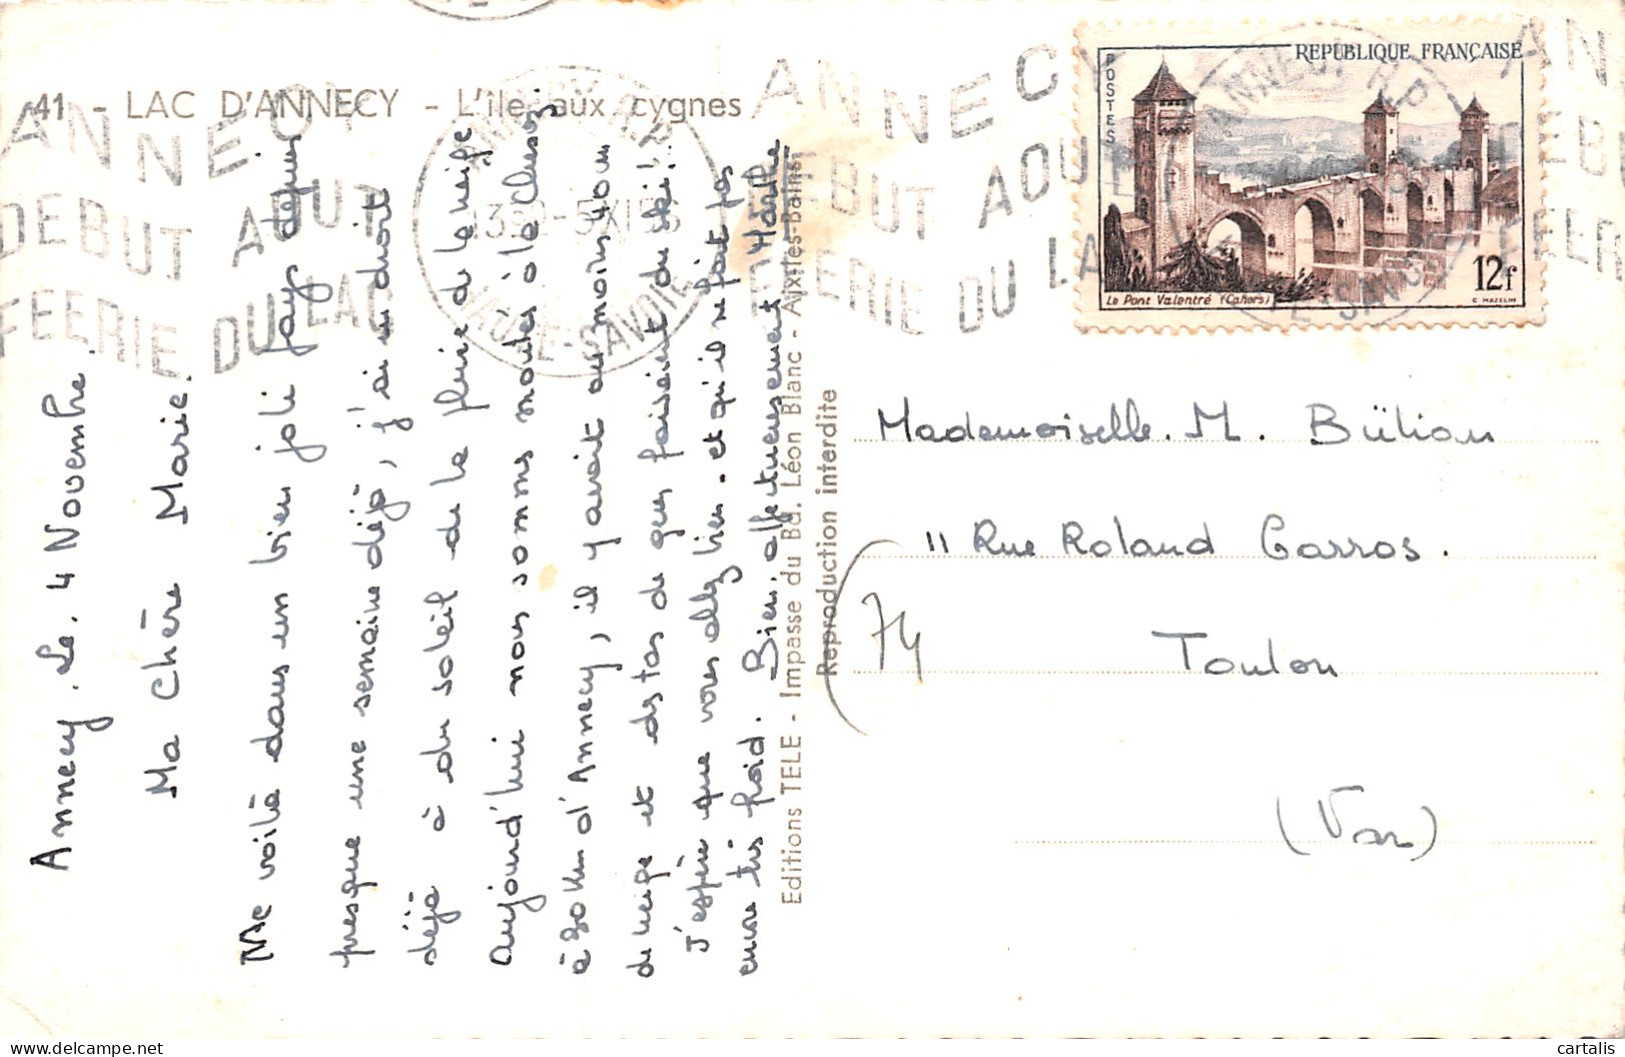 41 - LAC D'ANNECY - L'île aux cygnes
Annecy. Le. 4 Novembre.
Ma Chère Marie.
Me voilà dans un bien joli pays depuis
presque une semaine déjà, j'ai eu droit
déjà à du soleil de la pluie de la neige
aujourd'hui nous sommes montés à la Clusaz
à 30 Km d'Annecy, il y avait au moins 40cm
de neige et des tas de gens faisaient du ski!..
J'espère que vous allez bien. et qu'il ne fait pas
encore très froid. Bien affectueusement
Editions TELE - Impasse du Bd. Léon Blanc - Aix-les-Bains
Reproduction interdite
ANNECY
DEBUT AOUT
FEERIE DU LAC
ANNECY R.P
HAUTE-SAVOIE
ANNECY
DEBUT AOUT
FEERIE DU LA
REPUBLIQUE FRANÇAISE
POSTES
Le Pont Valentré (Cahors)
12f
C. MAZELIN
ANNECY R.P
TE-SAVOIE
Mademoiselle. M. Bülian
11 Rue Roland Garros.
74
Toulon
(Var)
cartalis